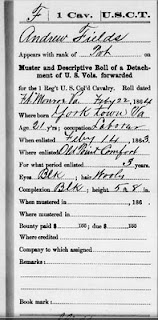 F | 1 Cav. | U.S.C.T.
Andrew Fields
Appears with rank of Pvt on
Muster and Descriptive Roll of a Detach-
ment of U. S. Vols. forwarded
for the 1 Reg't U. S. Col'd Cavalry. Roll dated
Ft. Monroe Va Feby 22, 1864
Where born York Town Va
Age 21 y'rs; occupation Laborer
When enlisted Feby 14, 1863
Where enlisted Old Point Comfort
For what period enlisted 3 years.
Eyes Blk; hair Wooly
Complexion Blk; height 5 ft. 8 in.
When mustered in , 186 .
Where mustered in
Bounty paid $ 100; due $ 100
Where credited
Company to which assigned
Remarks:
Book mark: